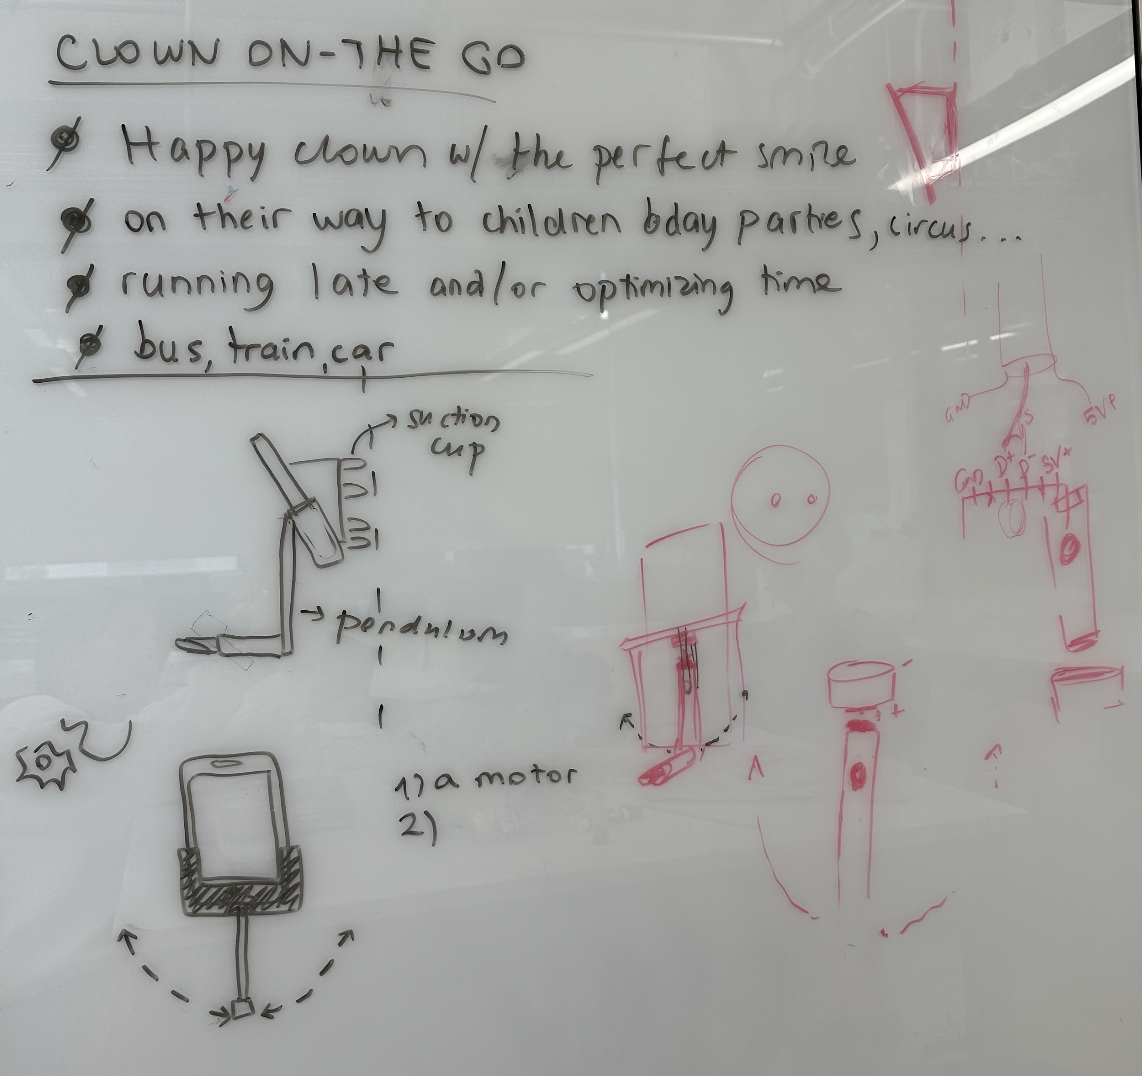 CLOWN ON-THE GO
Happy clown w/ the perfect smile
on their way to children bday parties, circus...
running late and/or optimizing time
bus, train, car
suction
cup
pendulum
1) a motor
2)
GND
5V+
GND D+ D- 5V+
-
+